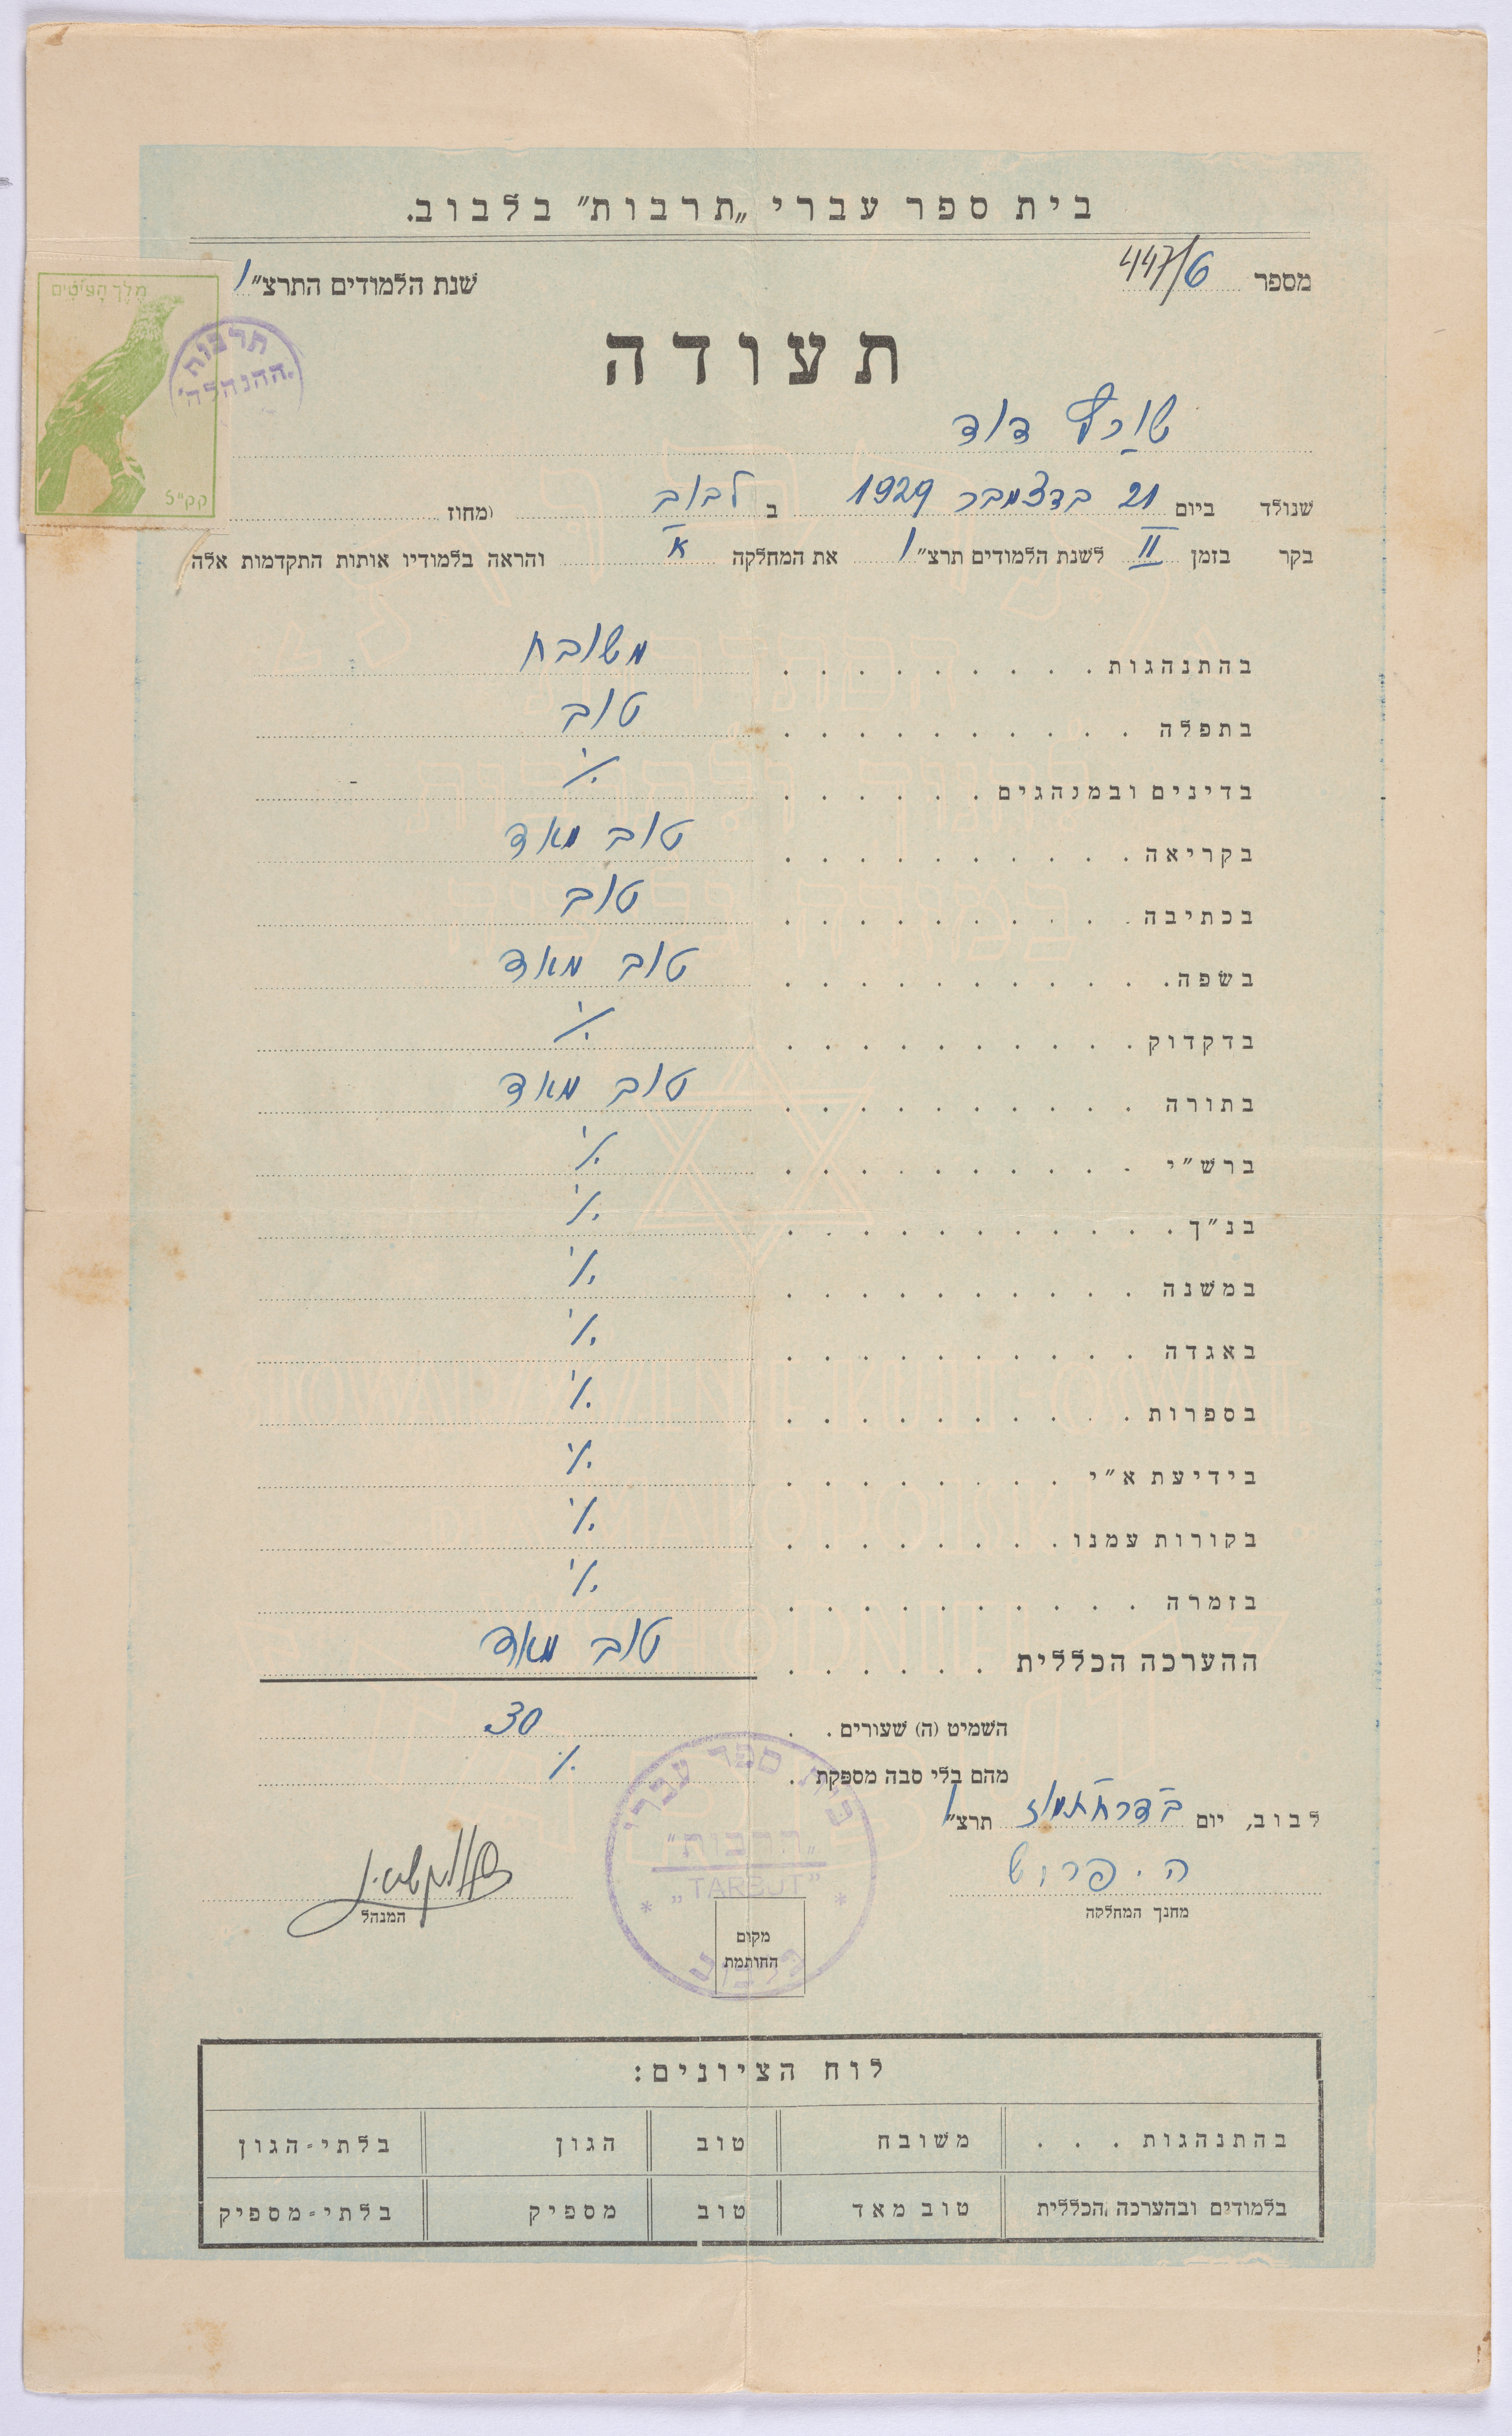 בית ספר עברי „תרבות” בלבוב.
מספר 447/6
שנת הלמודים התרצ״ו
מלך העיטים
קק״ל 5
תרבות
ההנהלה
תעודה
שורף דוד
שנולד ביום 21 בדצמבר 1929 ב לבוב ומחוז
בקר בזמן II לשנת הלמודים תרצ״ו את המחלקה א והראה בלמודיו אותות התקדמות אלה
בהתנהגות . . . . . . . . . משובח
בתפלה . . . . . . . . . . טוב
בדינים ובמנהגים . . . . . . ·/·
בקריאה . . . . . . . . . . טוב מאד
בכתיבה . . . . . . . . . . טוב
בשפה . . . . . . . . . . . טוב מאד
בדקדוק . . . . . . . . . . ·/·
בתורה . . . . . . . . . . טוב מאד
ברש״י . . . . . . . . . . ·/·
בנ״ך . . . . . . . . . . . ·/·
במשנה . . . . . . . . . . ·/·
באגדה . . . . . . . . . . ·/·
בספרות . . . . . . . . . . ·/·
בידיעת א״י . . . . . . . . ·/·
בקורות עמנו . . . . . . . . ·/·
בזמרה . . . . . . . . . . ·/·
ההערכה הכללית . . . . . . טוב מאד
השמיט (ה) שעורים . . 30
מהם בלי סבה מספקת . ·/·
לבוב, יום ב דר״ח תמוז תרצ״ו
ה. פרוש
מחנך המחלקה
המנהל
בית ספר עברי
„תרבות”
„TARBUT”
בלבוב
מקום
החותמת
לוח הציונים:
בהתנהגות . . . משובח טוב הגון בלתי-הגון
בלמודים ובהערכה הכללית טוב מאד טוב מספיק בלתי-מספיק